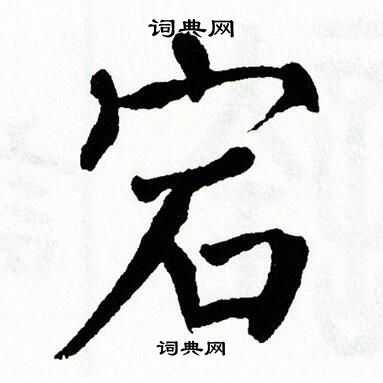 词典网
宕
词典网